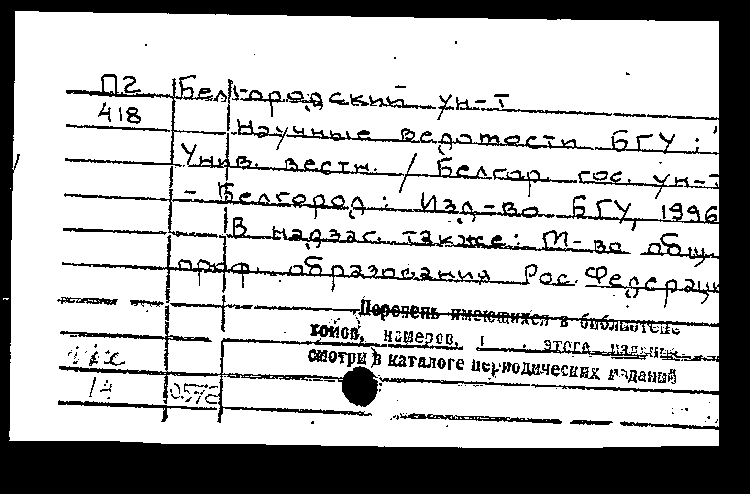 П2 Белгородский ун-т
418
Научные ведомости БГУ :
Унив. вестн. / Белгор. гос. ун-т
- Белгород : Изд-во БГУ, 1996
В надзаг. также: М-во общ.
проф. образования Рос. Федерац
Перечень имеющихся в библиотеке
томов, номеров, г этого издания
смотри в каталоге периодических изданий
14 0578